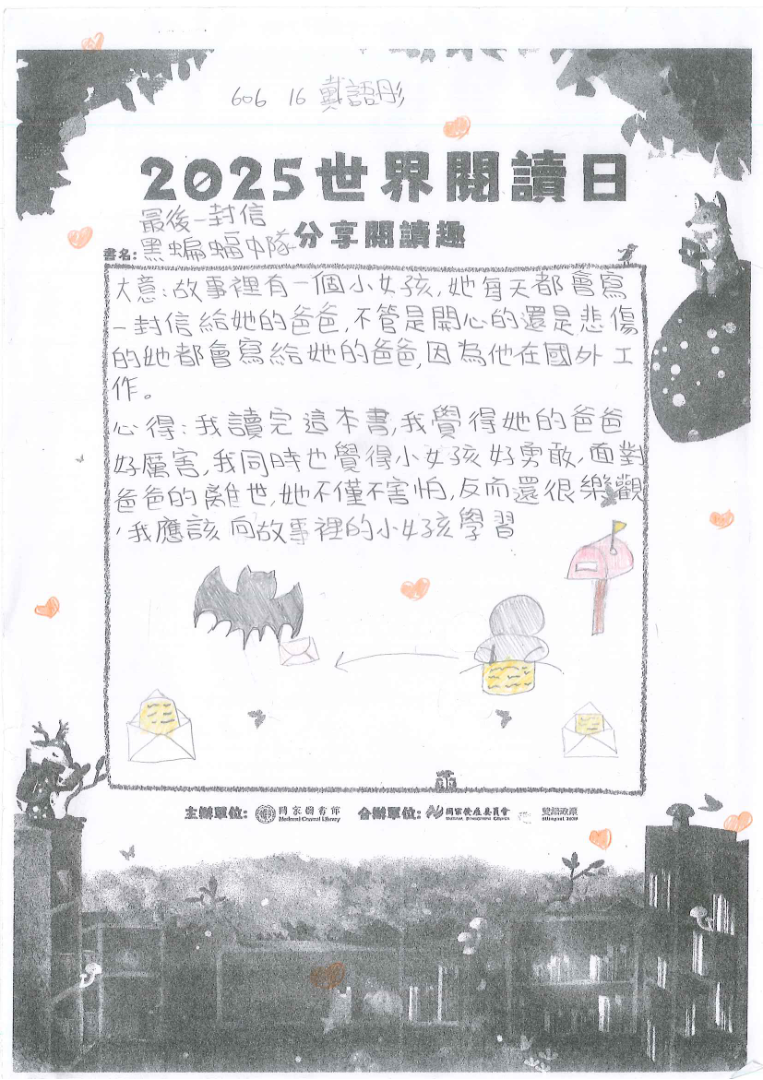 606 16 戴語彤
2025世界閱讀日
分享閱讀趣
最後一封信
書名: 黑蝙蝠中隊
大意:故事裡有一個小女孩,她每天都會寫
一封信給她的爸爸,不管是開心的還是悲傷
的她都會寫給她的爸爸,因為他在國外工
作。
心得:我讀完這本書,我覺得她的爸爸
好厲害,我同時也覺得小女孩好勇敢,面對
爸爸的離世,她不僅不害怕,反而還很樂觀
,我應該向故事裡的小女孩學習
主辦單位: 國家圖書館 National Central Library 合辦單位: 國家發展委員會 National Development Council 雙語政策 Bilingual 2030